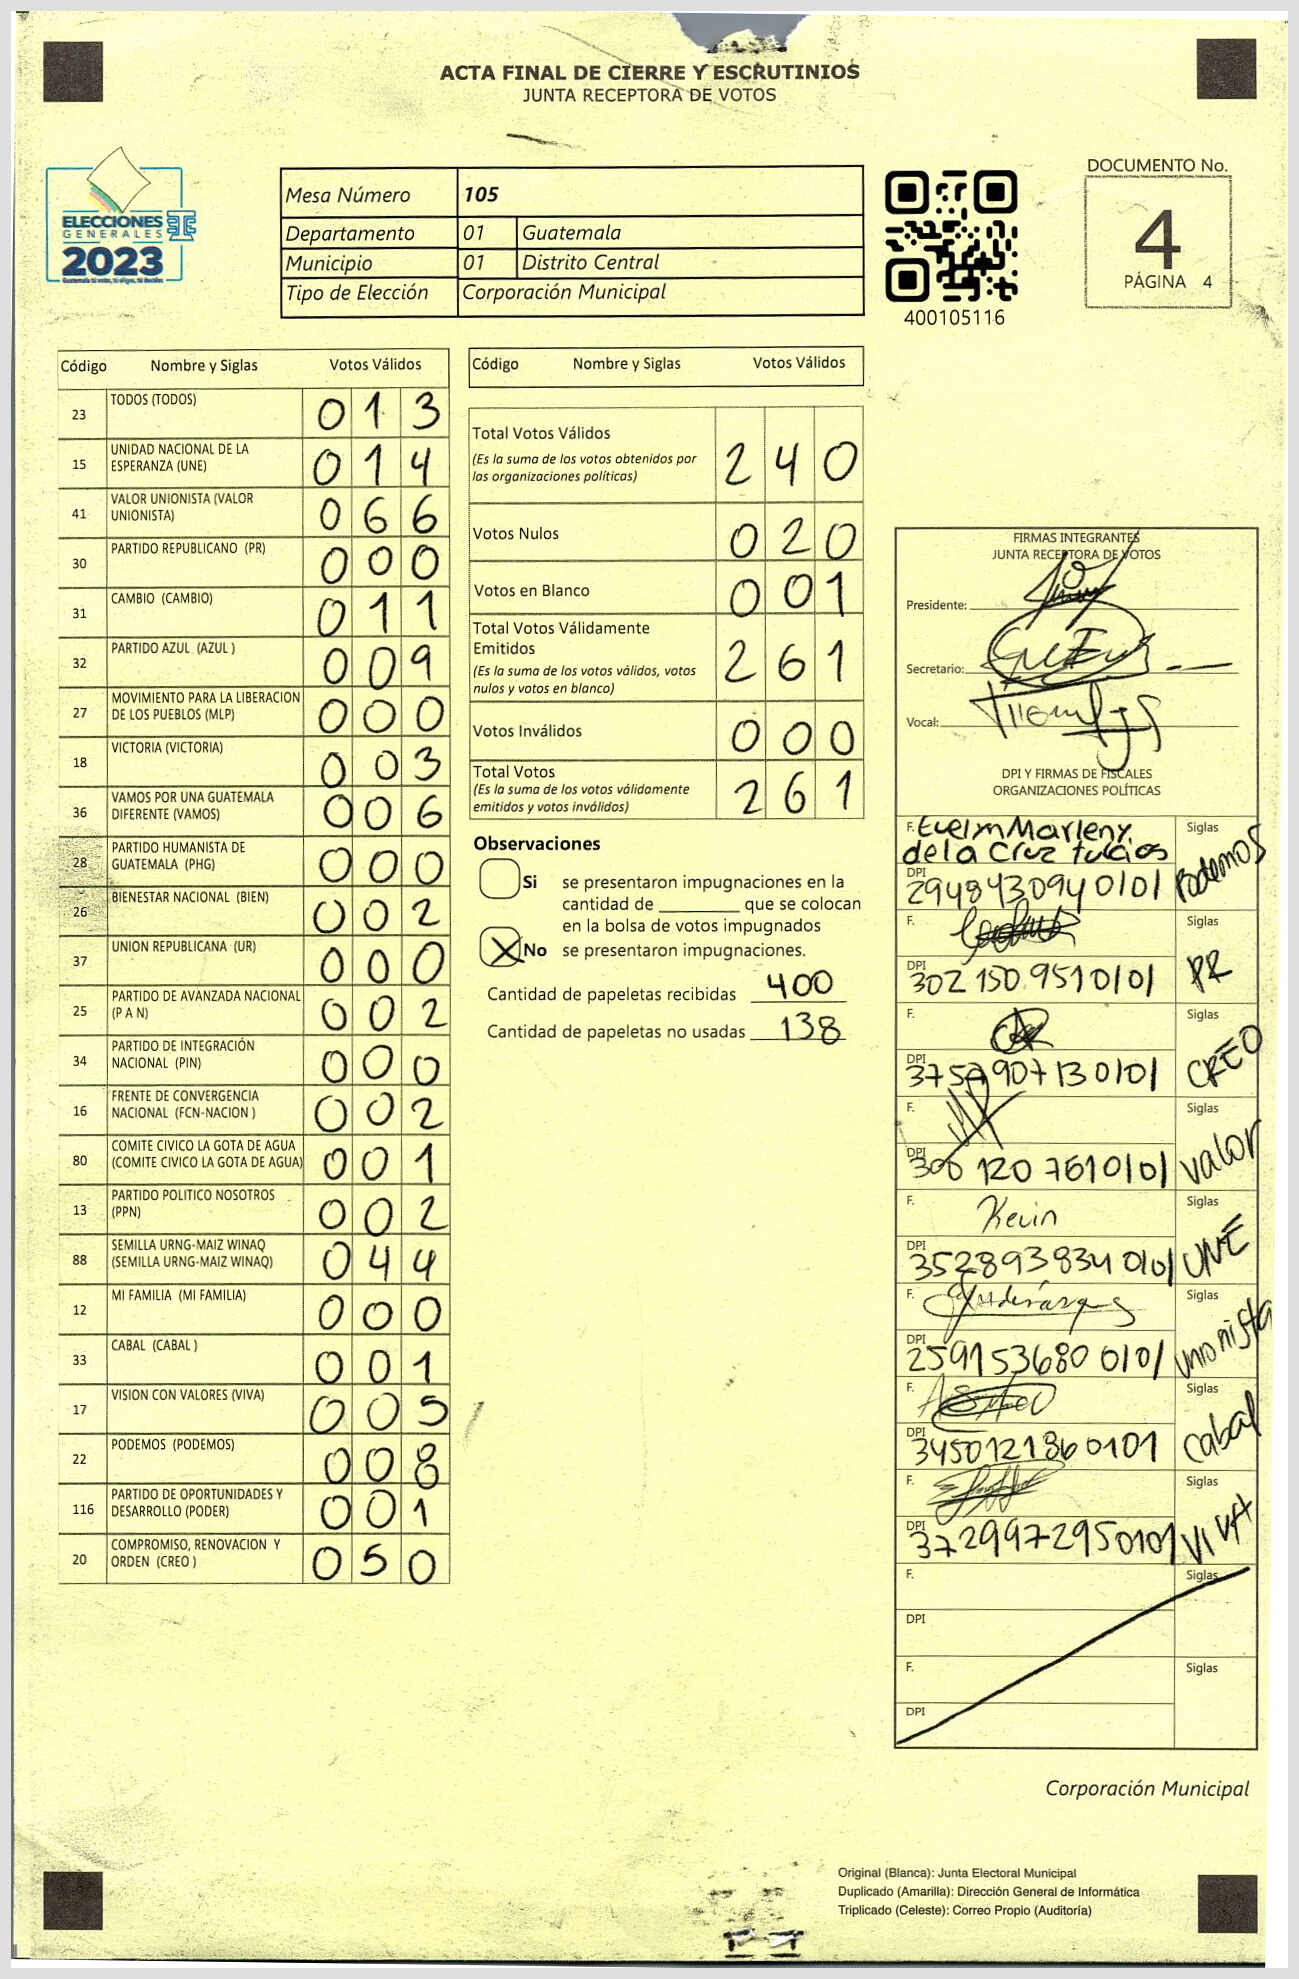 ACTA FINAL DE CIERRE Y ESCRUTINIOS
JUNTA RECEPTORA DE VOTOS
ELECCIONES
GENERALES
2023
Mesa Número 105
Departamento 01 Guatemala
Municipio 01 Distrito Central
Tipo de Elección Corporación Municipal
400105116
DOCUMENTO No.
4
PÁGINA 4
Código Nombre y Siglas Votos Válidos
23 TODOS (TODOS) 0 1 3
15 UNIDAD NACIONAL DE LA
ESPERANZA (UNE) 0 1 4
41 VALOR UNIONISTA (VALOR
UNIONISTA) 0 6 6
30 PARTIDO REPUBLICANO (PR) 0 0 0
31 CAMBIO (CAMBIO) 0 1 1
32 PARTIDO AZUL (AZUL ) 0 0 9
27 MOVIMIENTO PARA LA LIBERACION
DE LOS PUEBLOS (MLP) 0 0 0
18 VICTORIA (VICTORIA) 0 0 3
36 VAMOS POR UNA GUATEMALA
DIFERENTE (VAMOS) 0 0 6
28 PARTIDO HUMANISTA DE
GUATEMALA (PHG) 0 0 0
26 BIENESTAR NACIONAL (BIEN) 0 0 2
37 UNION REPUBLICANA (UR) 0 0 0
25 PARTIDO DE AVANZADA NACIONAL
(P A N) 0 0 2
34 PARTIDO DE INTEGRACIÓN
NACIONAL (PIN) 0 0 0
16 FRENTE DE CONVERGENCIA
NACIONAL (FCN-NACION ) 0 0 2
80 COMITE CIVICO LA GOTA DE AGUA
(COMITE CIVICO LA GOTA DE AGUA) 0 0 1
13 PARTIDO POLITICO NOSOTROS
(PPN) 0 0 2
88 SEMILLA URNG-MAIZ WINAQ
(SEMILLA URNG-MAIZ WINAQ) 0 4 4
12 MI FAMILIA (MI FAMILIA) 0 0 0
33 CABAL (CABAL ) 0 0 1
17 VISION CON VALORES (VIVA) 0 0 5
22 PODEMOS (PODEMOS) 0 0 8
116 PARTIDO DE OPORTUNIDADES Y
DESARROLLO (PODER) 0 0 1
20 COMPROMISO, RENOVACION Y
ORDEN (CREO ) 0 5 0
Código Nombre y Siglas Votos Válidos
Total Votos Válidos 2 4 0
(Es la suma de los votos obtenidos por
las organizaciones políticas)
Votos Nulos 0 2 0
Votos en Blanco 0 0 1
Total Votos Válidamente
Emitidos 2 6 1
(Es la suma de los votos válidos, votos
nulos y votos en blanco)
Votos Inválidos 0 0 0
Total Votos 2 6 1
(Es la suma de los votos válidamente
emitidos y votos inválidos)
Observaciones
Si se presentaron impugnaciones en la
cantidad de ________ que se colocan
en la bolsa de votos impugnados
X No se presentaron impugnaciones.
Cantidad de papeletas recibidas 400
Cantidad de papeletas no usadas 138
FIRMAS INTEGRANTES
JUNTA RECEPTORA DE VOTOS
Presidente:
Secretario:
Vocal:
DPI Y FIRMAS DE FISCALES
ORGANIZACIONES POLÍTICAS
F. Evelyn Marleny Siglas
de la Cruz Podemos
DPI 2948430940101
F. Siglas
DPI 302 150 9510101 PR
F. Siglas
DPI 3757907130101 CREO
F. Siglas
DPI 300 120 7610101 Valor
F. Kevin Siglas
DPI 3528938340101 UNE
F. Siglas
DPI 259153680 0101 Unionista
F. Siglas
DPI 3450121860101 Cabal
F. Siglas
DPI 3729972950101 VIVA
F. Siglas
DPI
F. Siglas
DPI
Corporación Municipal
Original (Blanca): Junta Electoral Municipal
Duplicado (Amarilla): Dirección General de Informática
Triplicado (Celeste): Correo Propio (Auditoría)